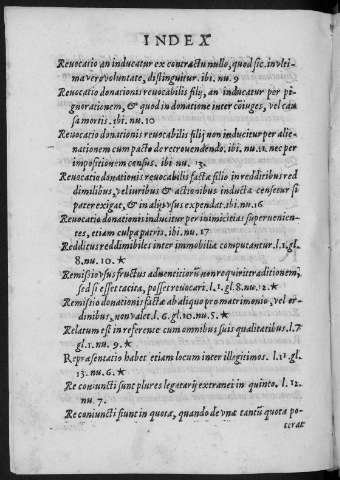 INDEX
Revocatio an inducatur ex contractu nullo, quod sic. in vlti-
ma vero voluntate, distinguitur. ibi. nu. 9
Revocatio donationis revocabilis filij, an inducatur per pi-
gnorationem, & quod in donatione inter cōiuges, vel cau
sa mortis. ibi. nu. 10
Revocatio donationis revocabilis filij non inducitur per alie-
nationem cum pacto de retrovendendo. ibi. nu. 12. nec per
impositionem census. ibi nu. 13.
Revocatio donationis revocabilis facta filio in redditibus red
dimilibus, vel iuribus & actionibus inducta censetur si
pater exigat, & in alijs vsus expendat. ibi. nu. 16
Revocatio donationis inducitur per inimicitias supervenien-
tes, etiam culpa patris. ibi. nu. 17
Redditus reddimibiles inter immobilia computantur. l. 1. gl.
8. nu. 10. ★
Remissio vsus fructus adventiciorū non requirit traditionem,
sed si esset tacita, posset revocari. l. 1. gl. 8. nu. 12. ★
Remissio donationis factæ ab aliquo pro matrimonio, vel or-
dinibus, non valet. l. 6. gl. 10. nu. 5. ★
Relatum est in referente cum omnibus suis qualitatibus. l. 7
gl. 1. nu. 9. ★
Repræsentatio habet etiam locum inter illegitimos. l. 11. gl.
13. nu. 6. ★
Re coniuncti sunt plures legatarij extranei in quinto. l. 12.
nu. 7.
Re coniuncti fiunt in quota, quando de vna tantū quota po-
terat